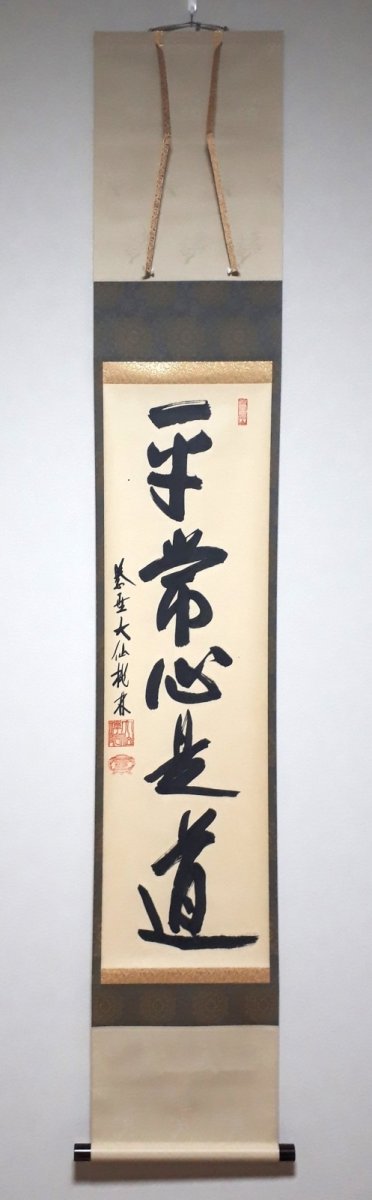 平常心是道
紫野大仙桃林